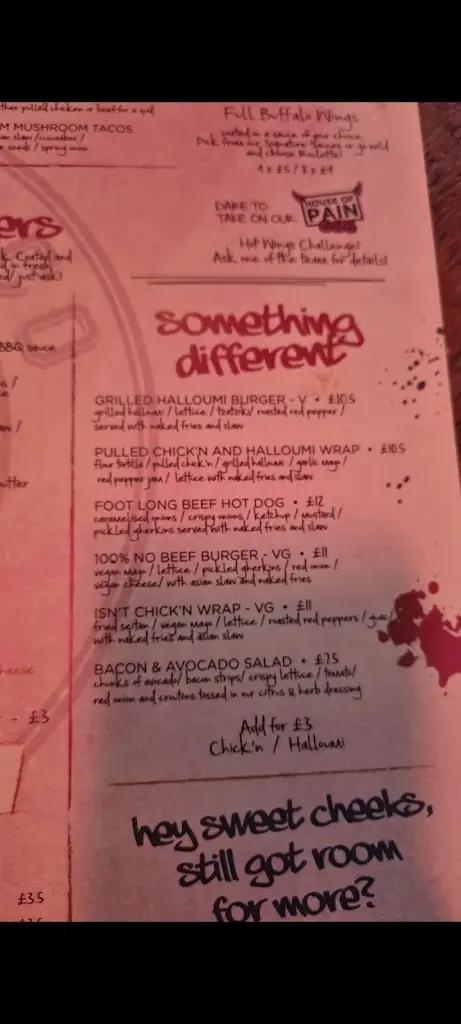 pulled chicken or beef for a quid
M MUSHROOM TACOS
slaw / cucumber /
seeds / spring onion
ers
Coated and
in fresh
just ask!
BBQ sauce
utter
cheese
- £3
£3.5
Full Buffalo Wings
coated in a sauce of your choice.
Pick from our Signature Sauces or go wild
and choose Roulette!
4 x £5 / 8 x £9
DARE TO
TAKE ON OUR
HOUSE OF
PAIN
Hot Wings Challenge?
Ask one of the team for details!
something
different
GRILLED HALLOUMI BURGER - V • £10.5
grilled halloumi / lettice / tzatziki / roasted red pepper /
served with naked fries and slaw
PULLED CHICK'N AND HALLOUMI WRAP • £10.5
flour tortilla / pulled chick'n / grilled halloumi / garlic mayo /
red pepper jam / lettice with naked fries and slaw
FOOT LONG BEEF HOT DOG • £12
caramelised onions / crispy onions / ketchup / mustard /
pickled gherkins served with naked fries and slaw
100% NO BEEF BURGER - VG • £11
vegan mayo / lettice / pickled gherkins / red onion /
vegan cheese/ with asian slaw and naked fries
ISN'T CHICK'N WRAP - VG • £11
fried seitan / vegan mayo / lettice / roasted red peppers / guac/
with naked fries and asian slaw
BACON & AVOCADO SALAD • £7.5
chunks of avocado/ bacon strips/ crispy lettice / tomato/
red onion and croutons tossed in our citrus & herb dressing
Add for £3
Chick'n / Halloumi
hey sweet cheeks,
still got room
for more?